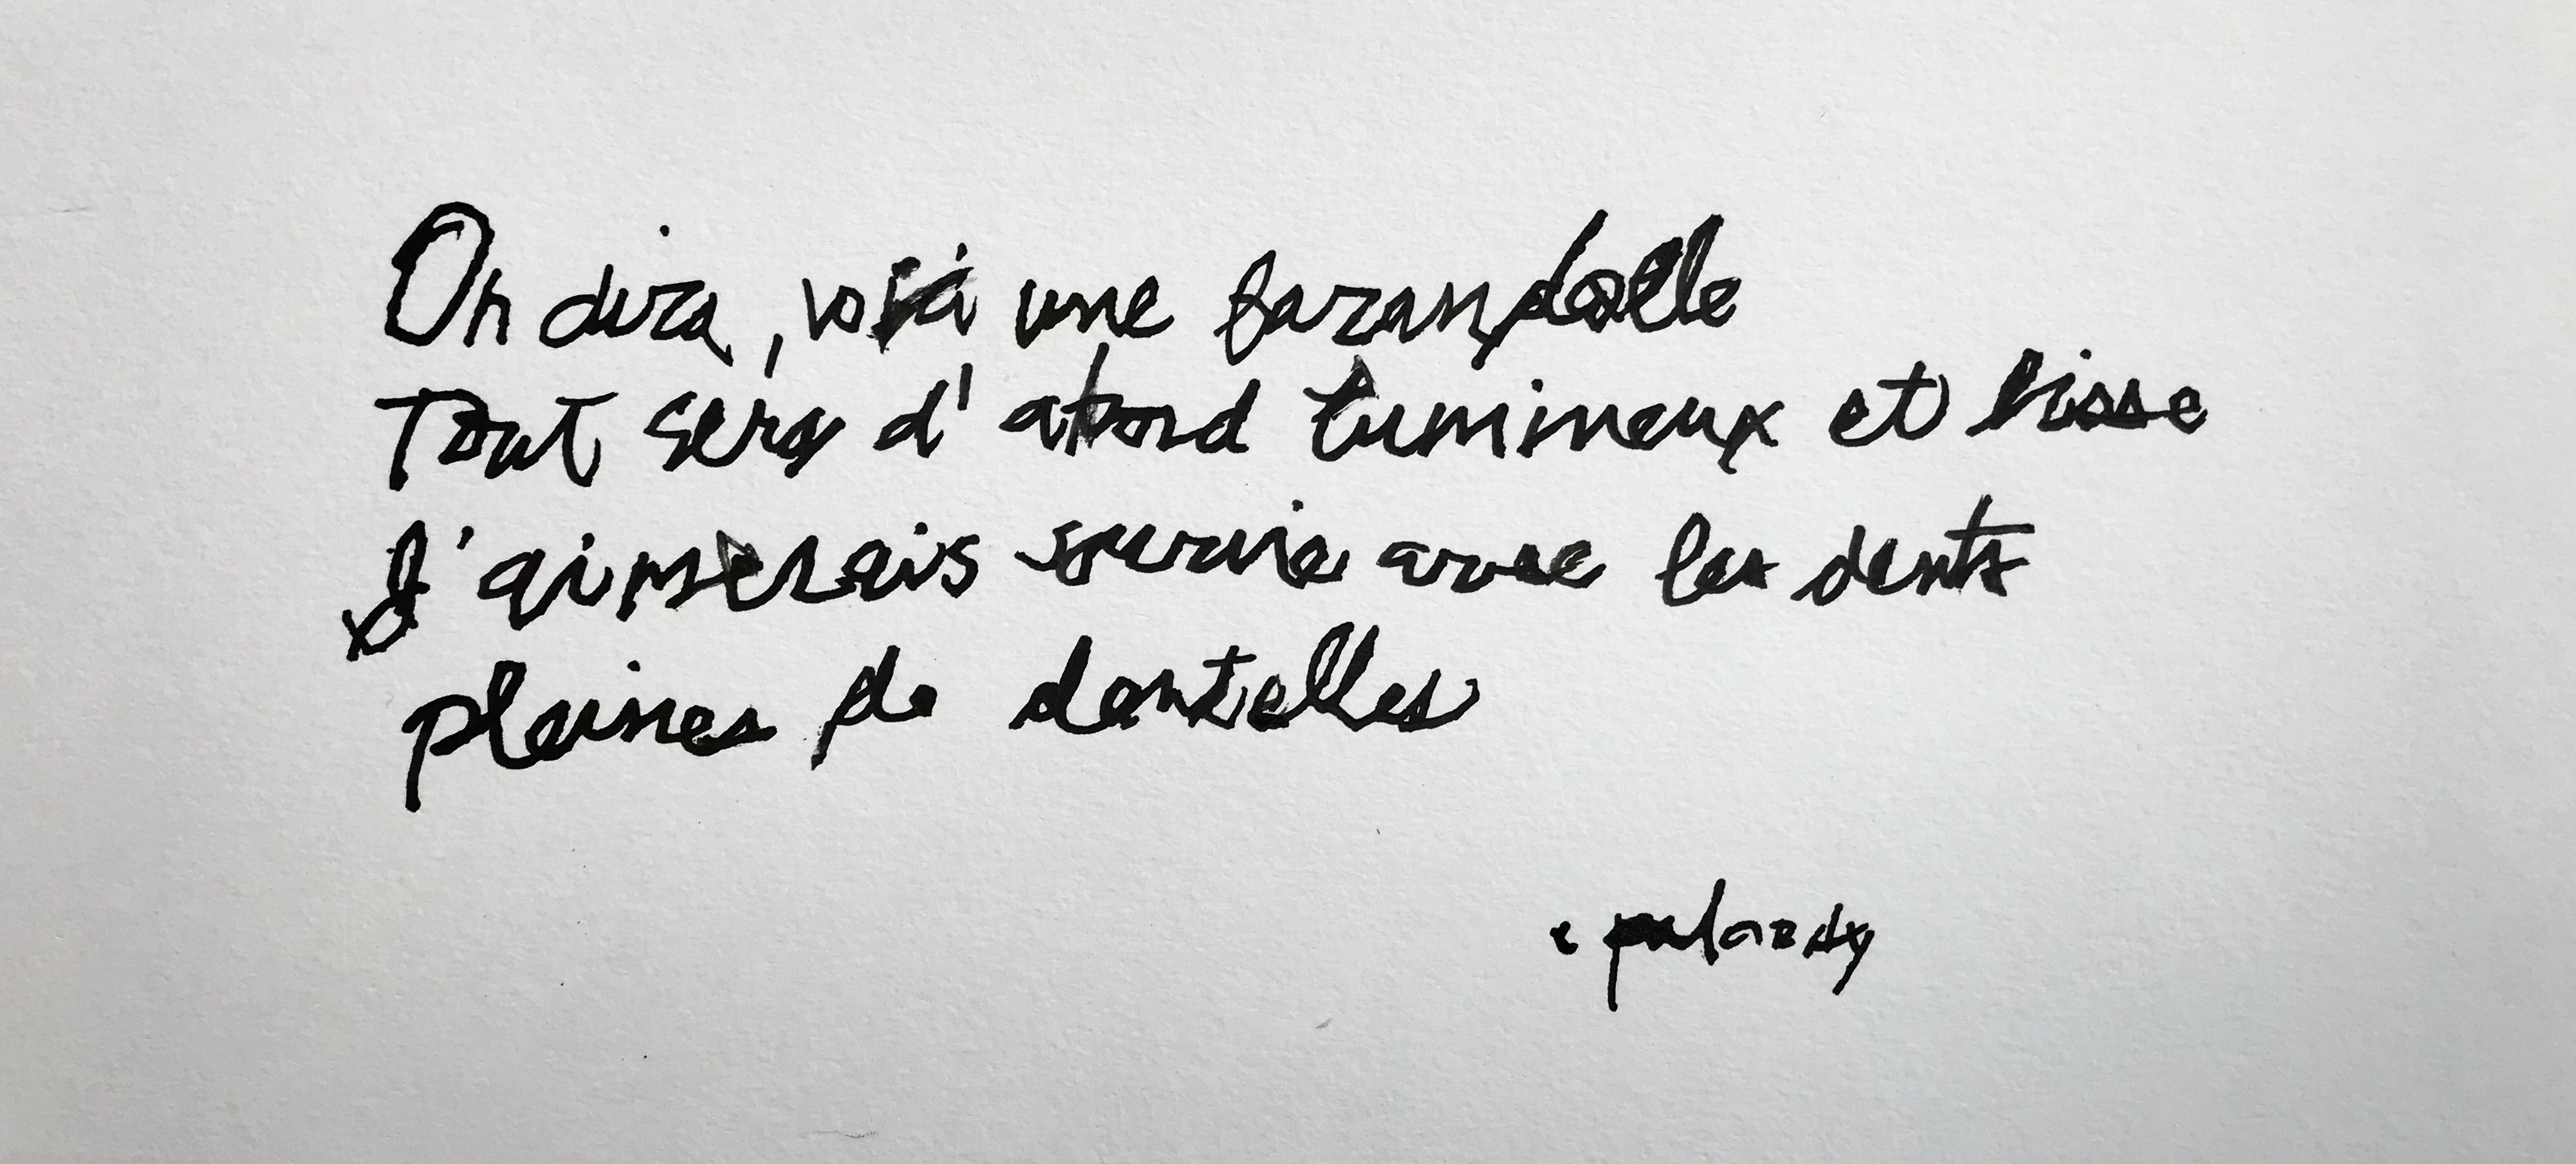 On dira, voià une farandolle
Tout sera d'abord lumineux et lisse
J'aimerais sourire avec les dents
pleines de dentelles